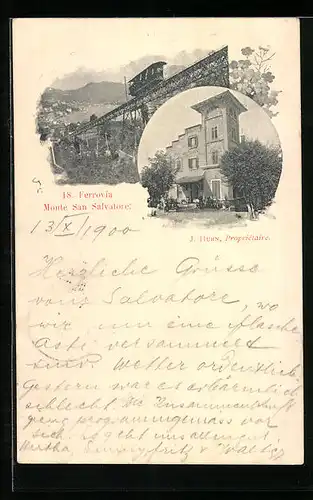 18. Ferrovia
Monte San Salvatore.
J. Huns, Propriétaire.
13/X/1900
Herzliche Grüsse
vom Salvatore, wo
wir um eine flasche
Asti versammelt
sind. Wetter ordentlich
Gestern war es erbärmlich
schlecht. Die Zusammenkunft
ging programmgemäss vor
sich. Es geht uns allen gut.
Hertha, fritz &